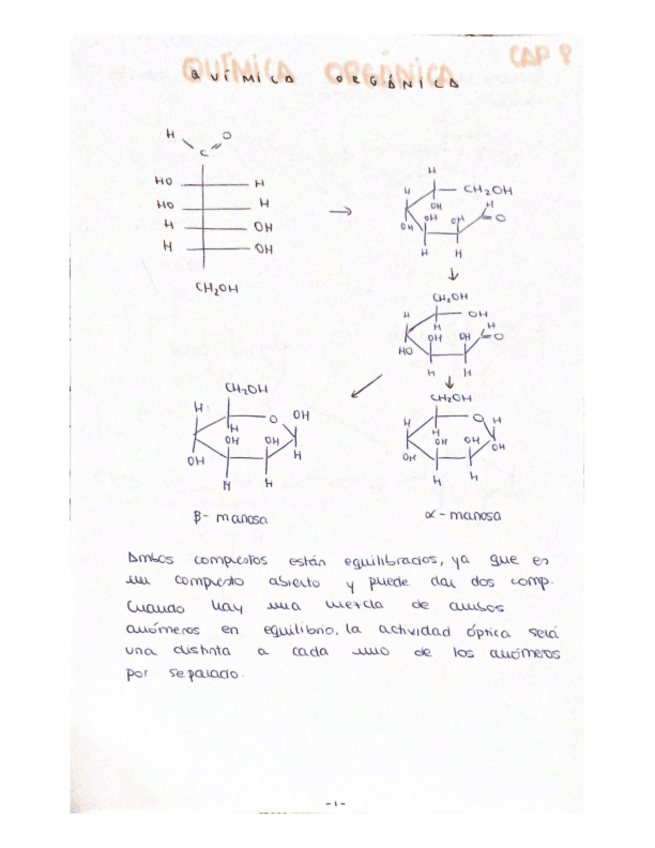 QUÍMICA ORGÁNICA
CAP 8
H O
C
HO H
HO H
H OH
H OH
CH₂OH
→
H
CH₂OH
H OH H
OH OH OH O
H H
↓
CH₂OH
H OH
H H
OH OH O
HO
H H
↓
CH₂OH
H O OH
H
OH OH H
OH
H H
β- manosa
CH₂OH
H O H
H
OH OH OH
OH
H H
α- manosa
Ambos compuestos están equilibrados, ya que es
un compuesto abierto y puede dar dos comp.
Cuando hay una mezcla de ambos
anómeros en equilibrio, la actividad óptica será
una distinta a cada uno de los anómeros
por separado.
-1-